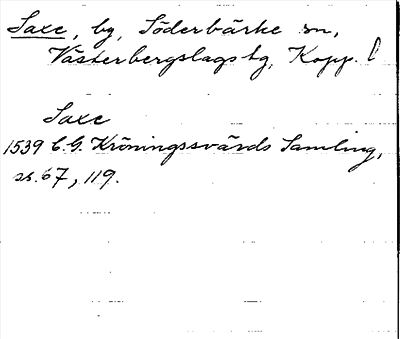 Saxe, by, Söderbärke sn,
Västerbergslags tg, Kopp. l
Saxe
1539 C.G. Kröningssvärds Samling,
s. 67, 119.